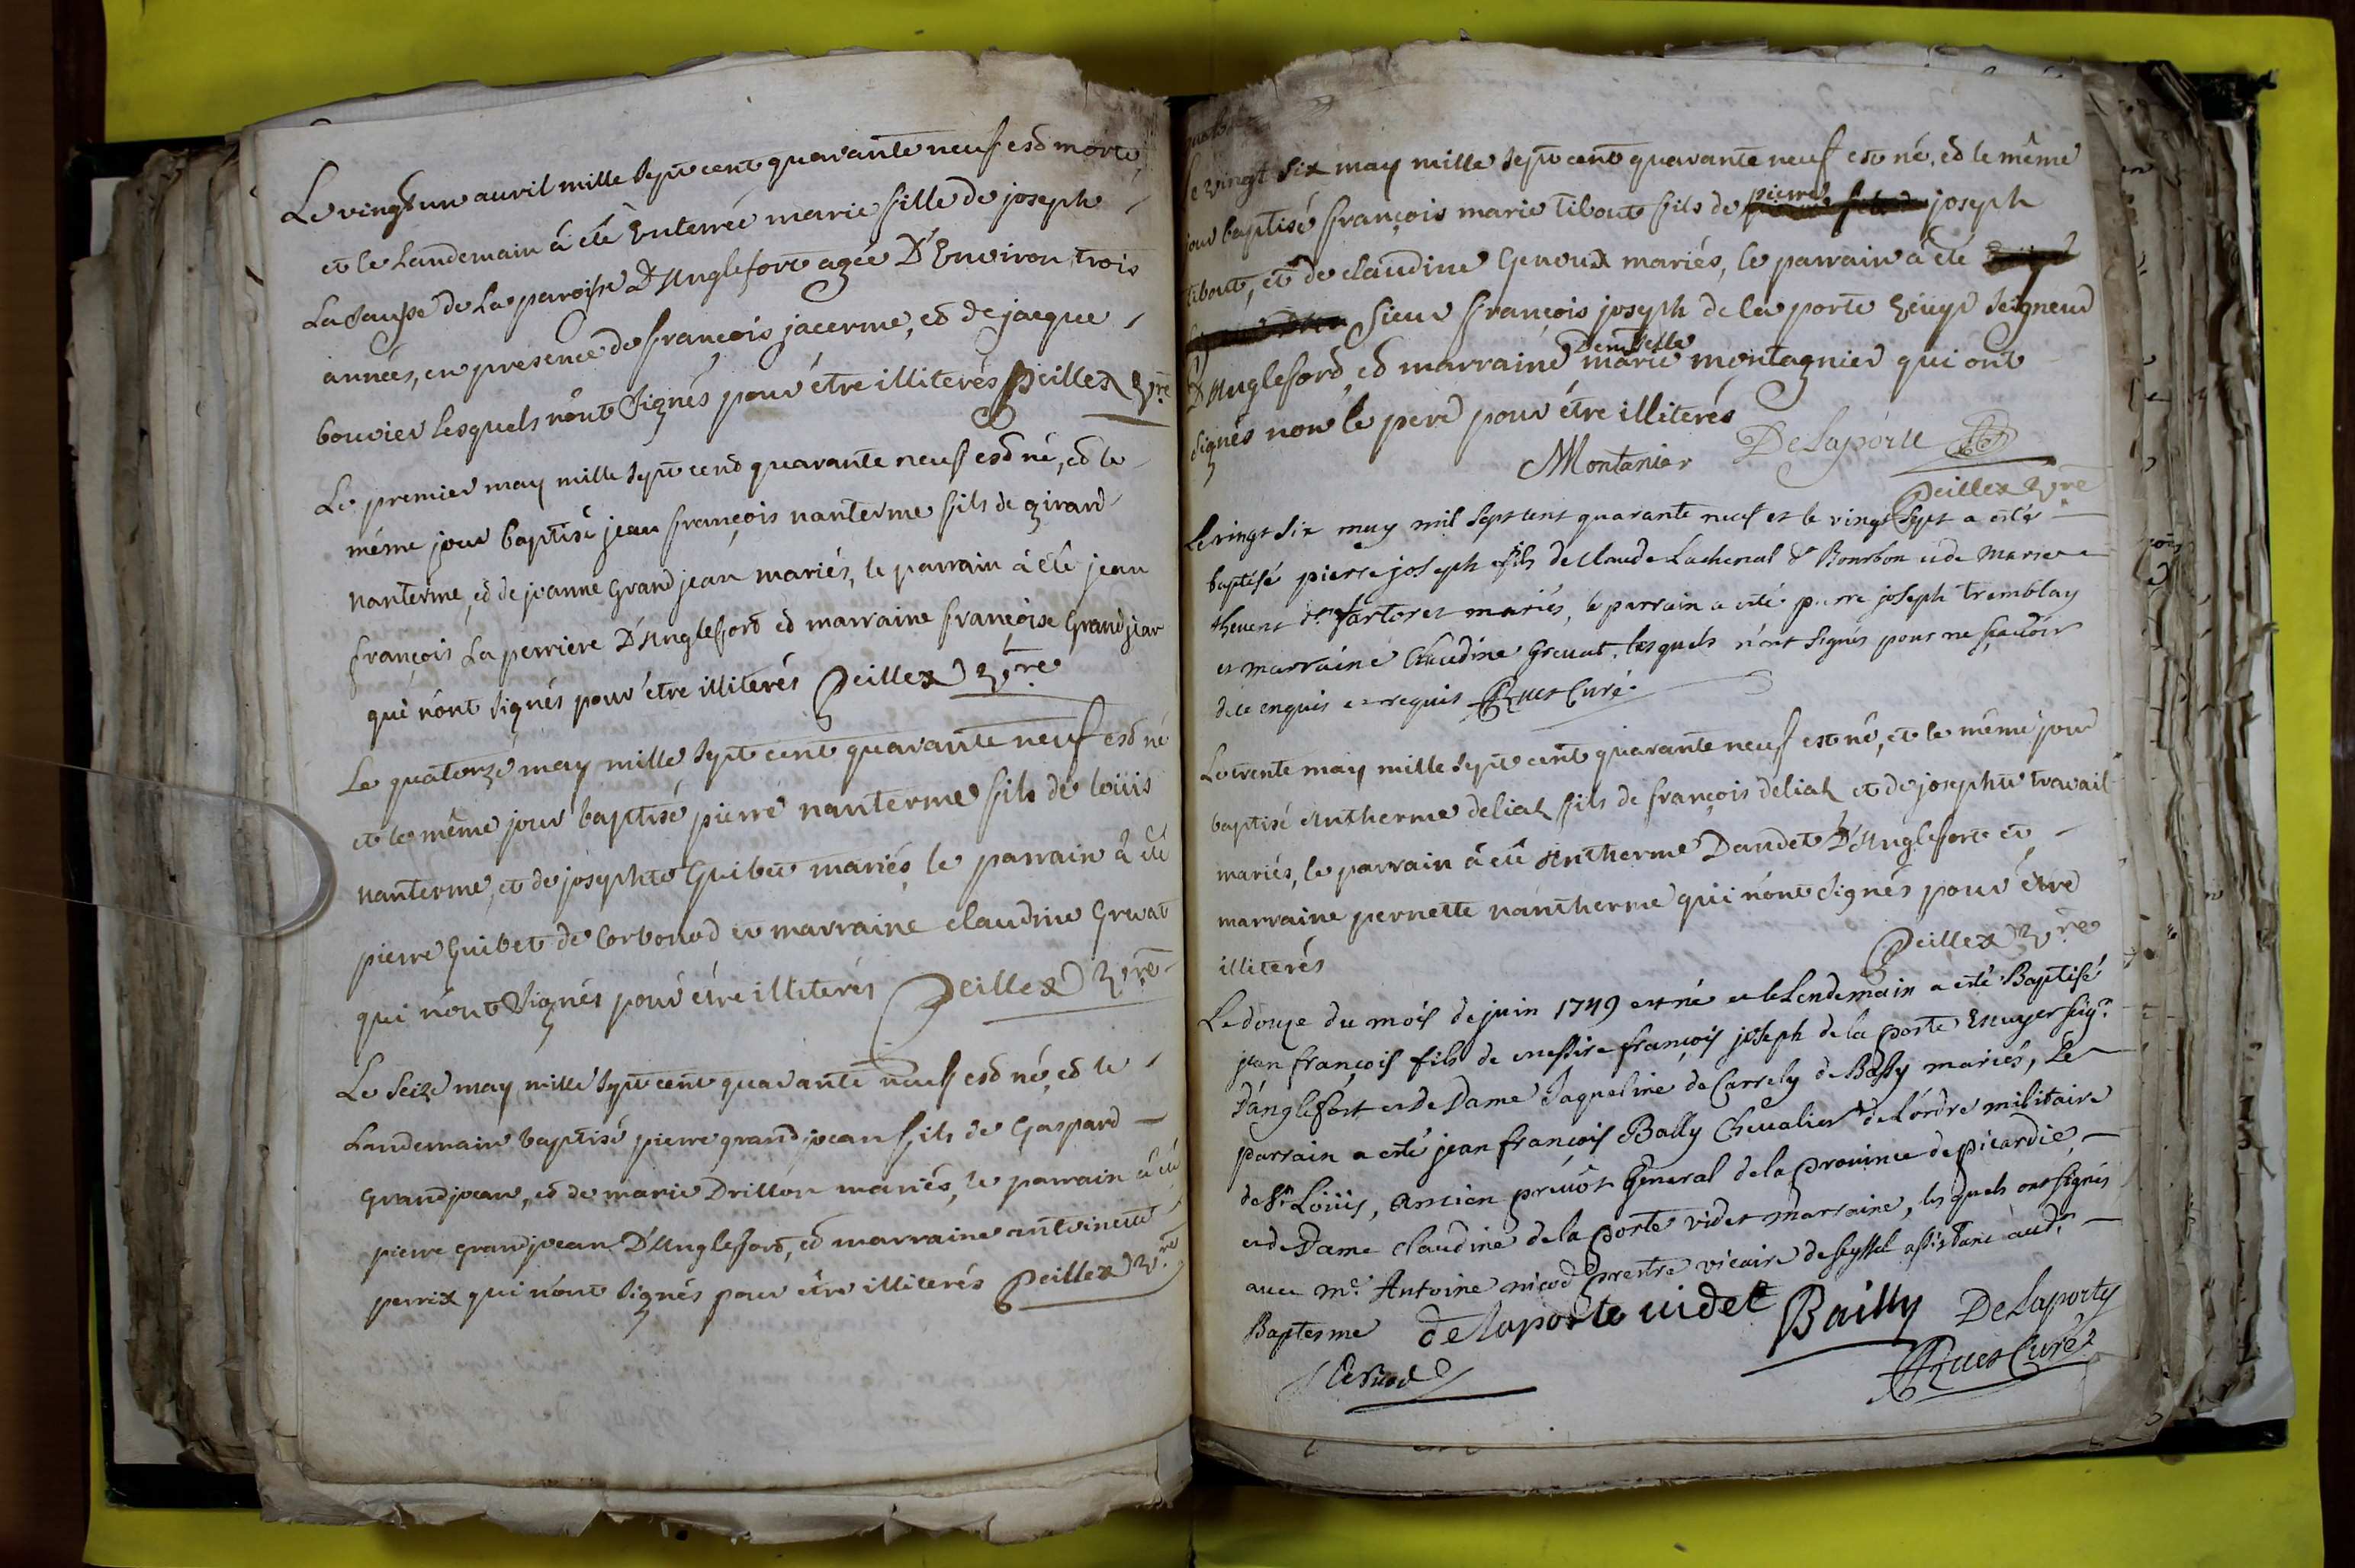 Le vingt un auvril mille sept cent quarante neuf est morte,
et le Landemain â été Enterrée marie fille de joseph
La Sausse de La paroisse D'Anglefort agée D'Environ trois
années, en presence de françois jacerme, et de jacque
bouvier Lesquels n'ont Signés pour être illiterés peillex vre
Le premier may mille sept cent quarante neuf est né, et le
même jour baptisé jean françois nanterme fils de girard
nanterme, et de jeanne Grand jean mariés, le parrain â été jean
françois La perriere D'Anglefort et marraine françoise Grandjean
qui n'ont signés pour être illiterés Peillex vre
Le quatorze may mille sept cent quarante neuf est né
et le même jour baptisé pierre nanterme fils de loüis
nanterme, et de josephte Guibet mariés, le parrain â été
pierre Guibet de Corbonod et marraine claudine Grevat
qui n'ont Signés pour être illiterés Peillex vre
Le Seize may mille sept cent quarante neuf est né, et le
Landemain baptisé pierre grandjean fils de Gaspard
grandjean, et de marie Drillon mariés, le parrain â été
pierre grandjean D'Anglefort, et marraine antoinette
perrix qui n'ont signés pour être illiterés Peillex vre
Le vingt Six may mille sept cent quarante neuf est né, et le même
jour baptisé françois marie tibout fils de pierre joseph
tibout, et de claudine Genoux mariés, le parrain â été
Sieur françois joseph de la porte Ecuyr Seigneur
D'Anglefort, et marraine Demoiselle marie montagnier qui ont
signés non le pere pour être illiterés
Montanier DeLaporte
Peillex vre
Le vingt Six may mil sept cent quarante neuf et le vingt sept a esté
baptisé pierre joseph fils de Claude Lachenal dt Bourbon et de Marie
thevent dt fartoret mariés, le parrain a esté pierre joseph tremblay
et marraine Claudine Grevat, lesquels n'ont signés pour ne sçavoir
de ce enquis et requis Curé
Le trente may mille sept cent quarante neuf est né, et le même jour
baptisé Antherme deliat fils de françois deliat et de josephte travail
mariés, le parrain â été Antherme Dandet D'Anglefort et
marraine pernette nantherme qui n'ont Signés pour être
illiterés Peillex vre
Le douze du mois de juin 1749 est né et le Lendemain a esté Baptisé
jean françois fils de messire françois joseph de la porte Escuyer seigr
D'anglefort et de Dame Jaqueline de Carrely de Bally mariés, Le
parrain a esté jean françois Bally Chevalier de L'ordre militaire
de St Loüis, Ancien prevôt General de la province de picardie,
et de Dame Claudine de la porte videt marraine, lesquels ont signés
avec me Antoine nicod prestre vicaire de seyssel assistant audt
Baptesme delaporte videt Bailly DeLaporty
Curé